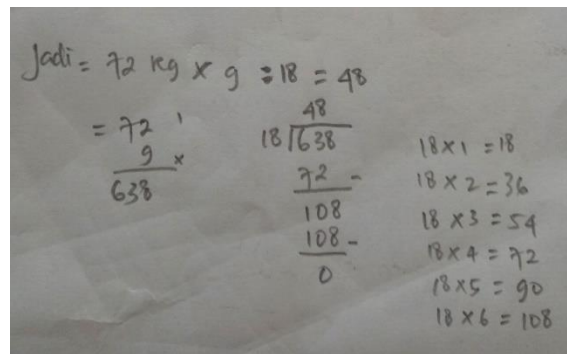 Jadi = 72 kg x 9 : 18 = 48
= 72
9 x
638
48
18 √638
72 -
108
108 -
0
18 x 1 = 18
18 x 2 = 36
18 x 3 = 54
18 x 4 = 72
18 x 5 = 90
18 x 6 = 108